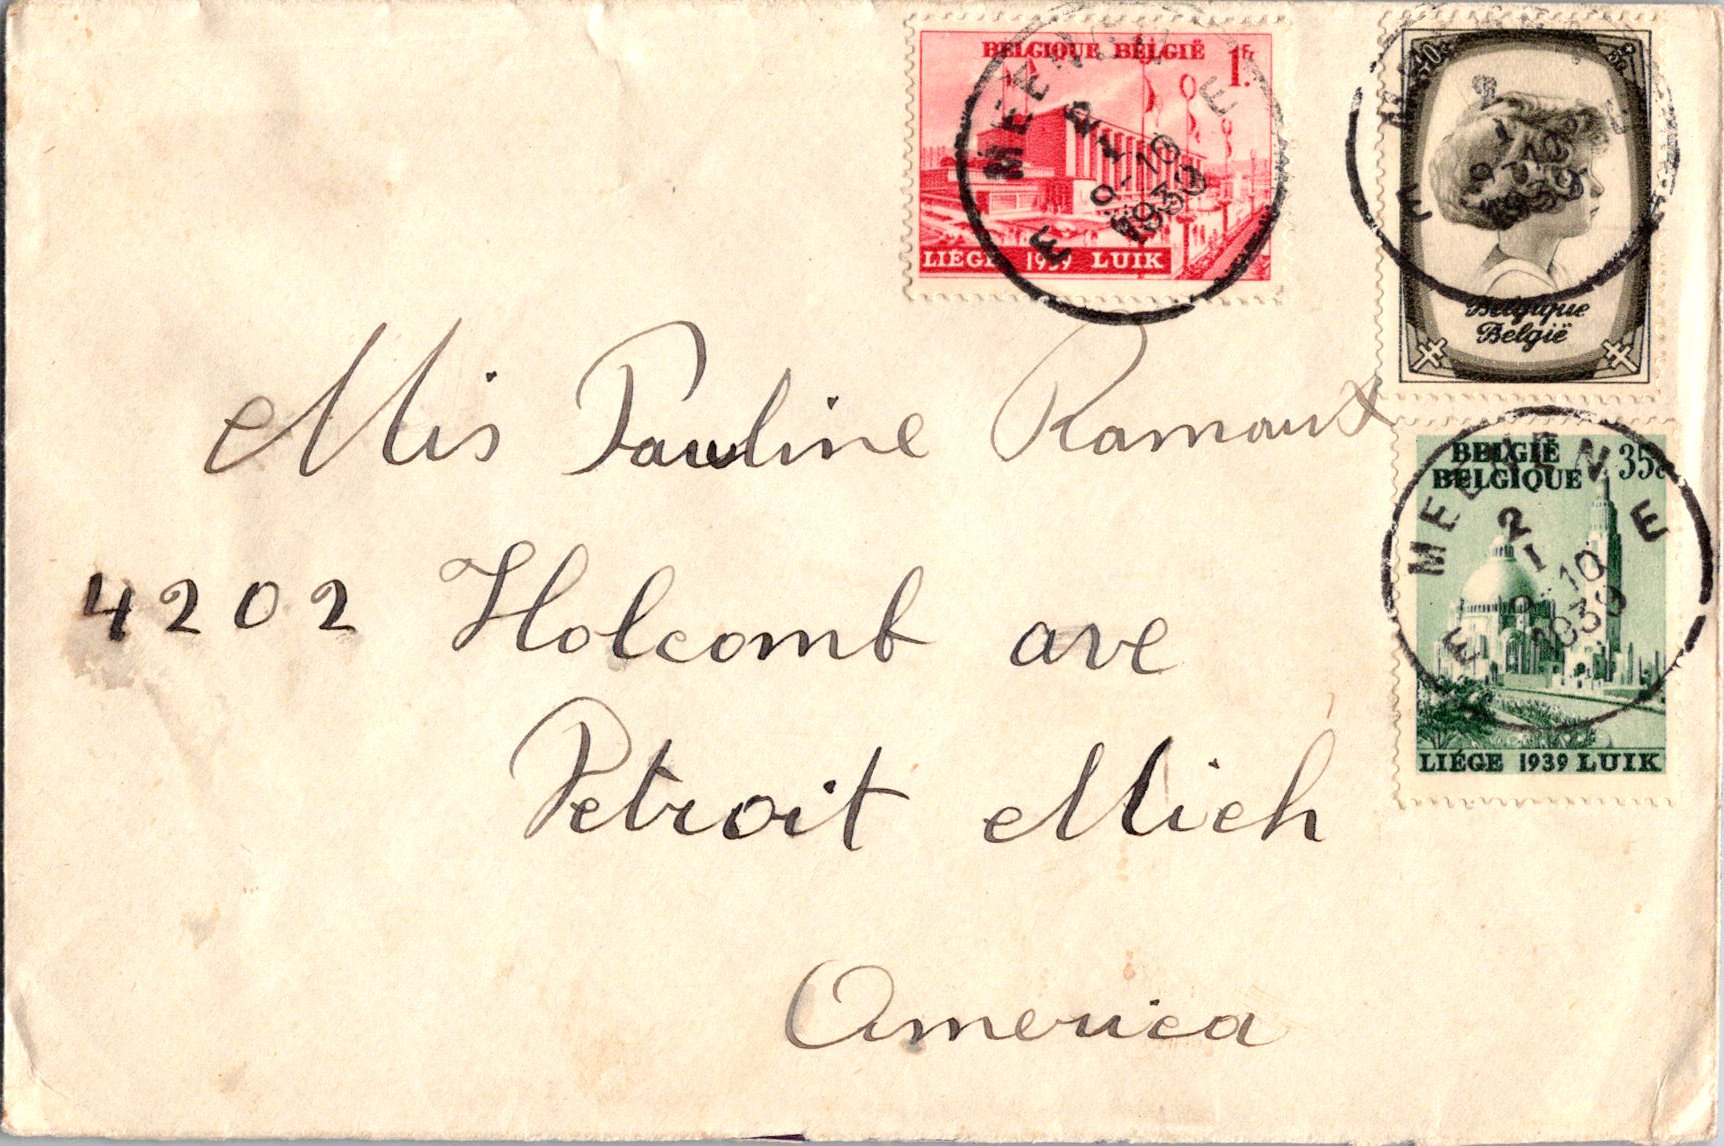 BELGIQUE BELGIË 1Fr
LIÉGE 1939 LUIK
Belgique
België
BELGIË 35c
BELGIQUE
LIÉGE 1939 LUIK
MEEUWEN
E E
2
I
9-10
1939
Mis Pauline Ramaux
4202 Holcomb ave
Detroit Mich
America